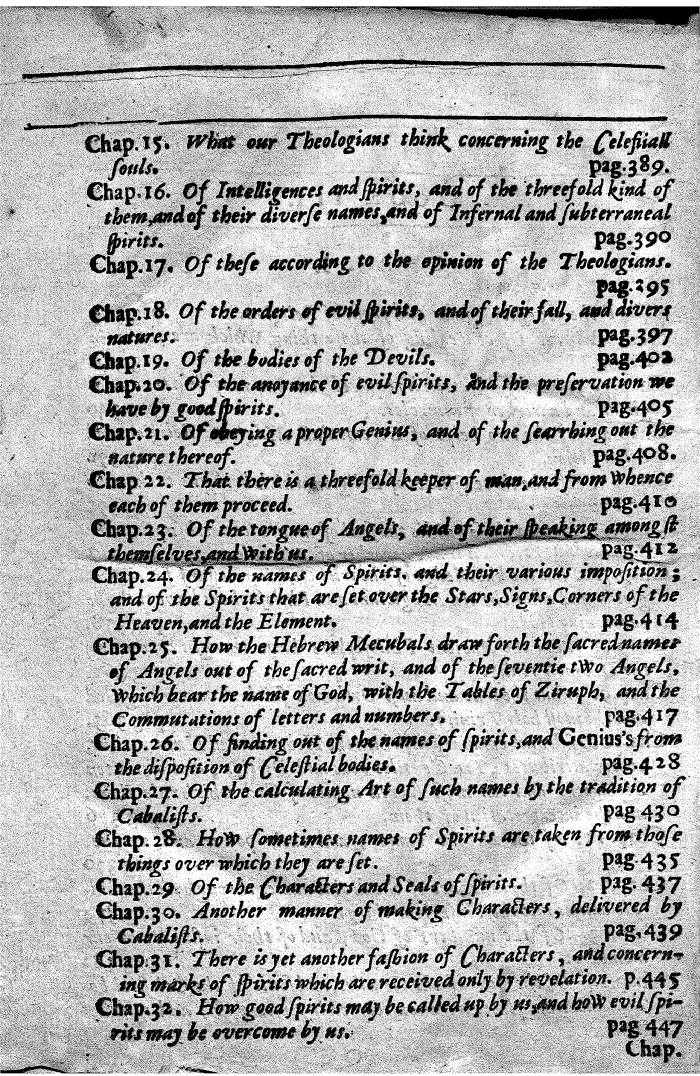 Chap.15. What our Theologians think concerning the Celestiall
ſouls. pag.389.
Chap.16. Of Intelligences and ſpirits, and of the threefold kind of
them,and of their diverſe names,and of Infernal and ſubterraneal
ſpirits. pag.390
Chap.17. Of theſe according to the opinion of the Theologians.
pag.395
Chap.18. Of the orders of evil ſpirits, and of their fall, and divers
natures. pag.397
Chap.19. Of the bodies of the Devils. pag.402
Chap.20. Of the anoyance of evil ſpirits, and the preſervation we
have by good ſpirits. pag.405
Chap.21. Of obeying a proper Genius, and of the ſearrhing out the
nature thereof. pag.408.
Chap 22. That there is a threefold keeper of man,and from whence
each of them proceed. pag.410
Chap.23. Of the tongue of Angels, and of their ſpeaking amongſt
themſelves,and with us. pag.412
Chap.24. Of the names of Spirits. and their various impoſition ;
and of the Spirits that are ſet over the Stars,Signs,Corners of the
Heaven,and the Element. pag.414
Chap.25. How the Hebrew Mecubals draw forth the ſacred names
of Angels out of the ſacred writ, and of the ſeventie two Angels,
which bear the name of God, with the Tables of Ziruph, and the
Commutations of letters and numbers. pag.417
Chap.26. Of finding out of the names of ſpirits,and Genius's from
the diſpoſition of Celeſtial bodies. pag.428
Chap.27. Of the calculating Art of ſuch names by the tradition of
Cabaliſts. pag 430
Chap.28. How ſometimes names of Spirits are taken from thoſe
things over which they are ſet. pag.435
Chap.29. Of the Characters and Seals of ſpirits. pag. 437
Chap.30. Another manner of making Characters, delivered by
Cabaliſts. pag,439
Chap.31. There is yet another faſhion of Characters, and concern-
ing marks of ſpirits which are received only by revelation. p.445
Chap.32. How good ſpirits may be called up by us,and how evil ſpi-
rits may be overcome by us. pag 447
Chap.